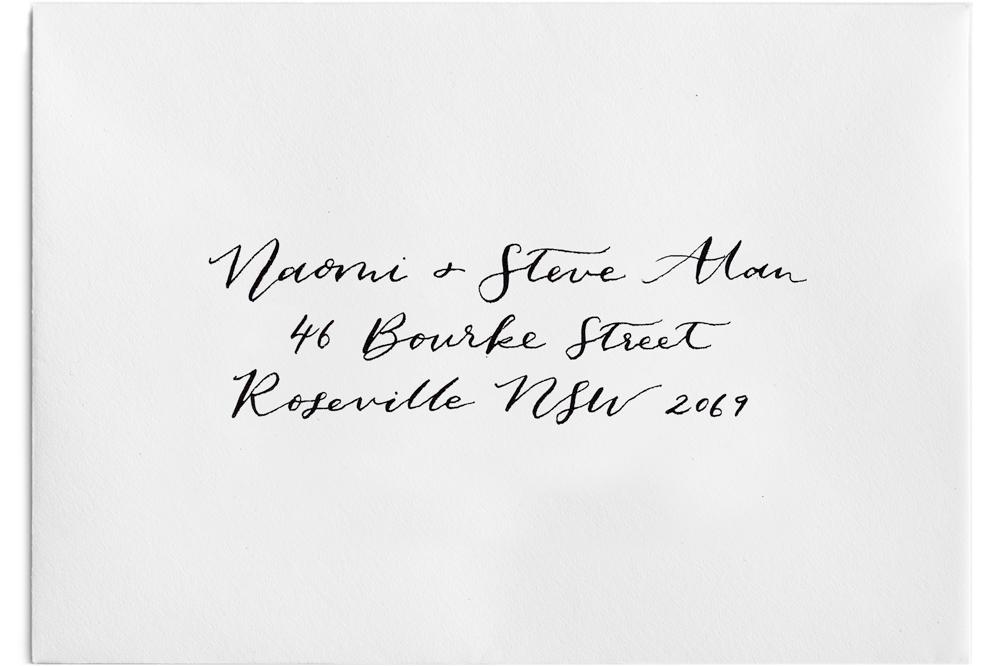 Naomi + Steve Alan
46 Bourke Street
Roseville NSW 2069